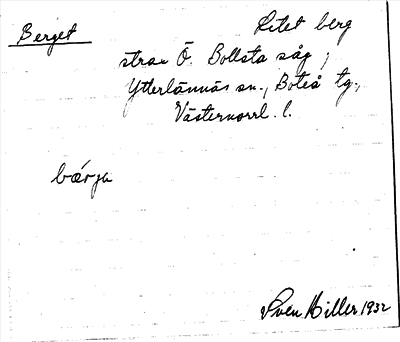 Berget
Litet berg
strax Ö. Bollsta såg,
Ytterlännäs sn., Boteå tg.,
Västernorrl. l.
bærjə
Sven Hiller 1932